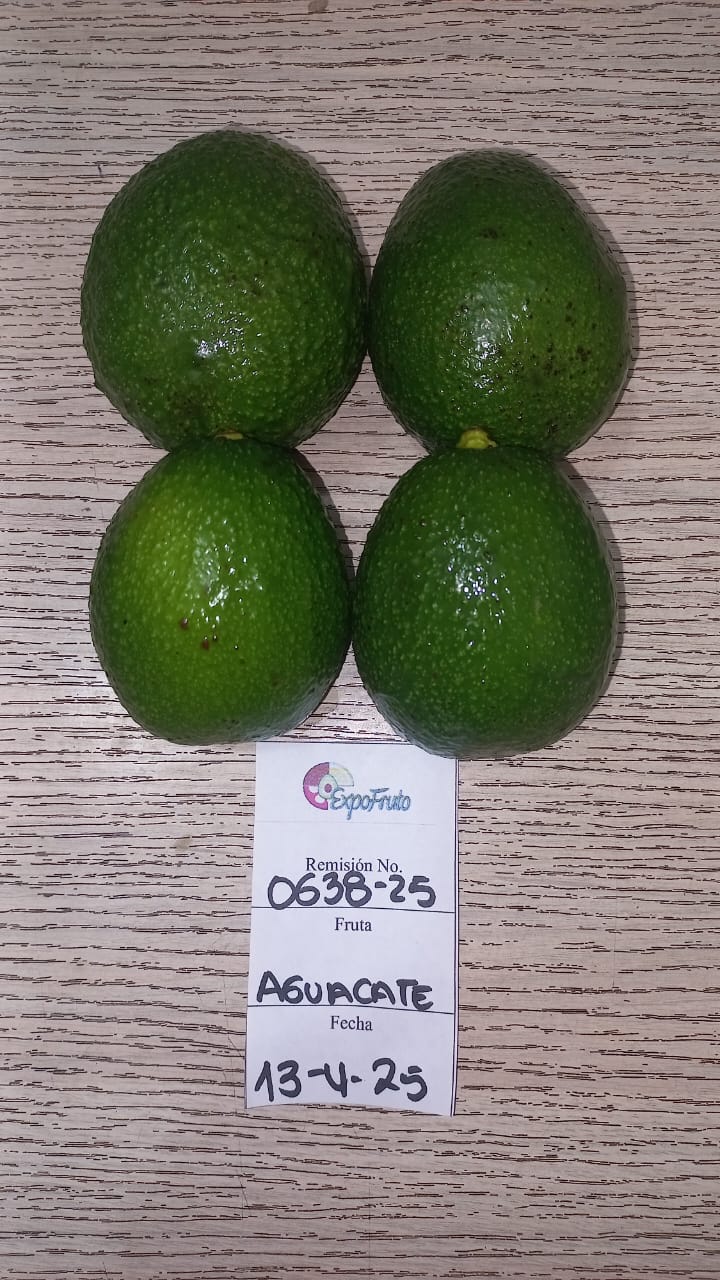 ExpoFruto
Remisión No.
0638-25
Fruta
AGUACATE
Fecha
13-4-25